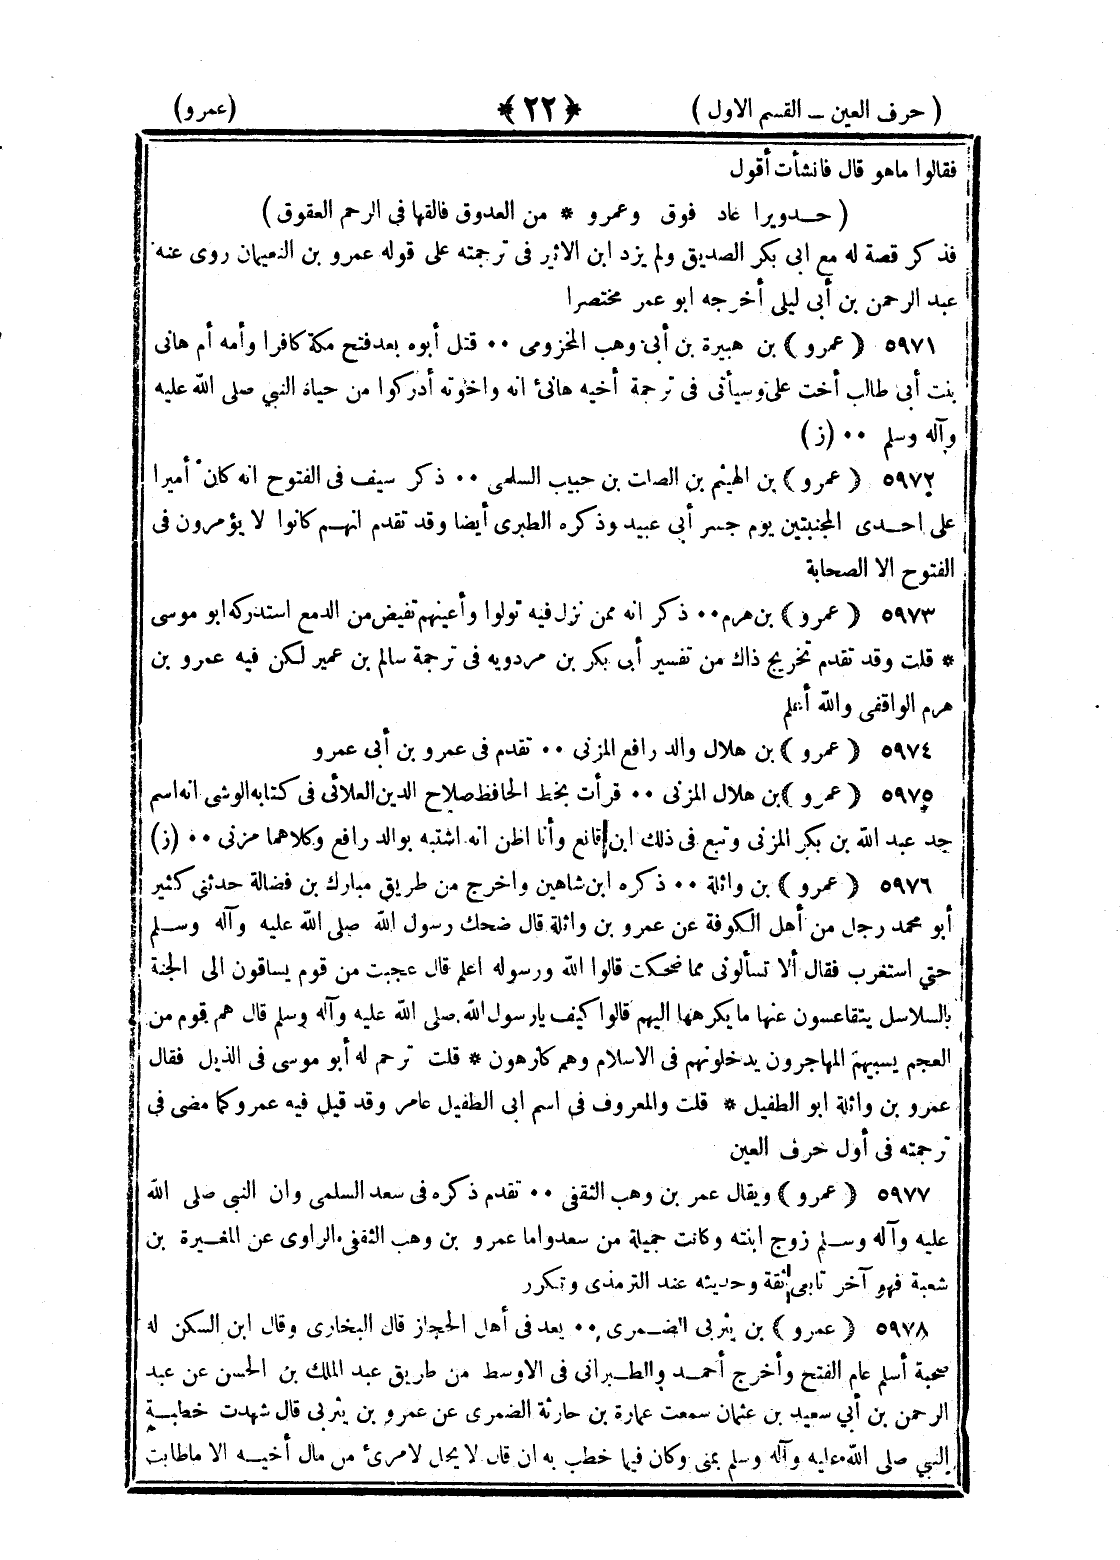 ( حرف العين ــ القسم الاول ) ﴿ ٢٢ ﴾ (عمرو)
فقالوا ماهو قال فانشأت أقول
( حـدويرا عاد فوق وعمرو * من العدوق فالقها فى الرحم العقوق )
فذكر قصة له مع ابى بكر الصديق ولم يزد ابن الاثير فى ترجمته على قوله عمرو بن النعيمان روى عنه
عبد الرحمن بن أبى ليلى أخرجه ابو عمر مختصرا
٥٩٧١ ﴿ عمرو ﴾ بن هبيرة بن أبى وهب المخزومى ٠٠ قتل أبوه بعد فتح مكة كافرا وأمه أم هانى
بنت أبى طالب أخت على وسيأتى فى ترجمة أخيه هانئ انه واخوته أدركوا من حياة النبي صلى الله عليه
وآله وسلم ٠٠ (ز)
٥٩٧٢ ﴿ عمرو ﴾ بن الهيثم بن الصات بن حبيب السلمى ٠٠ ذكر سيف فى الفتوح انه كان أميرا
على احـدى المجنبتين يوم جسر أبى عبيد وذكره الطبرى أيضا وقد تقدم انهـم كانوا لا يؤمرون فى
الفتوح الا الصحابة
٥٩٧٣ ﴿ عمرو ﴾ بن هرم ٠٠ ذكر انه ممن نزل فيه تولوا وأعينهم تفيض من الدمع استدركه ابو موسى
* قلت وقد تقدم تخريج ذاك من تفسير أبى بكر بن مردويه فى ترجمة سالم بن عمير لكن فيه عمرو بن
هرم الواقفى والله أعلم
٥٩٧٤ ﴿ عمرو ﴾ بن هلال والد رافع المزنى ٠٠ تقدم فى عمرو بن أبى عمرو
٥٩٧٥ ﴿ عمرو ﴾ بن هلال المزنى ٠٠ قرأت بخط الحافظ صلاح الدين العلائى فى كتابه الوشى انه اسم
جد عبد الله بن بكر المزنى وتبع فى ذلك ابن قانع وأنا اظن انه اشتبه بوالد رافع وكلاهما مزنى ٠٠ (ز)
٥٩٧٦ ﴿ عمرو ﴾ بن واثلة ٠٠ ذكره ابن شاهين واخرج من طريق مبارك بن فضالة حدثني كثير
أبو محمد رجل من أهل الكوفة عن عمرو بن واثلة قال ضحك رسول الله صلى الله عليه وآله وسـلم
حتي استغرب فقال ألا تسألونى مما ضحكت قالوا الله ورسوله اعلم قال عجبت من قوم يساقون الى الجنة
بالسلاسل يتقاعسون عنها ما يكرهها اليهم قالوا كيف يارسول الله صلى الله عليه وآله وسلم قال هم قوم من
العجم يسبيهم المهاجرون يدخلونهم فى الاسلام وهم كارهون * قلت ترحم له أبو موسى فى الذيل فقال
عمرو بن واثلة ابو الطفيل * قلت والمعروف فى اسم ابى الطفيل عامر وقد قيل فيه عمرو كما مضى فى
ترجمته فى أول حرف العين
٥٩٧٧ ﴿ عمرو ﴾ ويقال عمر بن وهب الثقفى ٠٠ تقدم ذكره فى سعد السلمى وان النبي صلى الله
عليه وآله وسـلم زوج ابنته وكانت جميلة من سعد واما عمرو بن وهب الثقفى الراوى عن المغـيرة بن
شعبة فهو آخر تابعى ثقة وحديثه عند الترمذى وتكرر
٥٩٧٨ ﴿ عمرو ﴾ بن يثربى الضـمرى ٠٠ يعد فى أهل الحجاز قال البخارى وقال ابن السكن له
صحبة أسلم عام الفتح وأخرج أحمـد والطـبرانى فى الاوسط من طريق عبد الملك بن الحسن عن عبد
الرحمن بن أبي سعيد بن عثمان سمعت عمارة بن حارثة الضمرى عن عمرو بن يثربى قال شهدت خطبـة
النبي صلى الله عليه وآله وسلم بمنى وكان فيما خطب به ان قال لا يحل لامرئ من مال أخيـه الا ماطابت